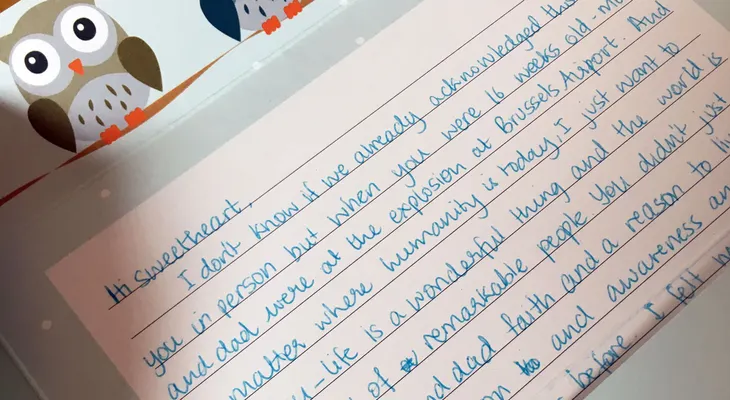 Hi Sweetheart,
I don't know if we already acknowledged this
you in person but when you were 16 weeks old -
and dad were at the explosion at Brussels Airport. And
matter where humanity is today, I just want to
-life is a wonderful thing and the world is
of remarkable people. You didn't just
dad faith and a reason to
and awareness
before. I felt